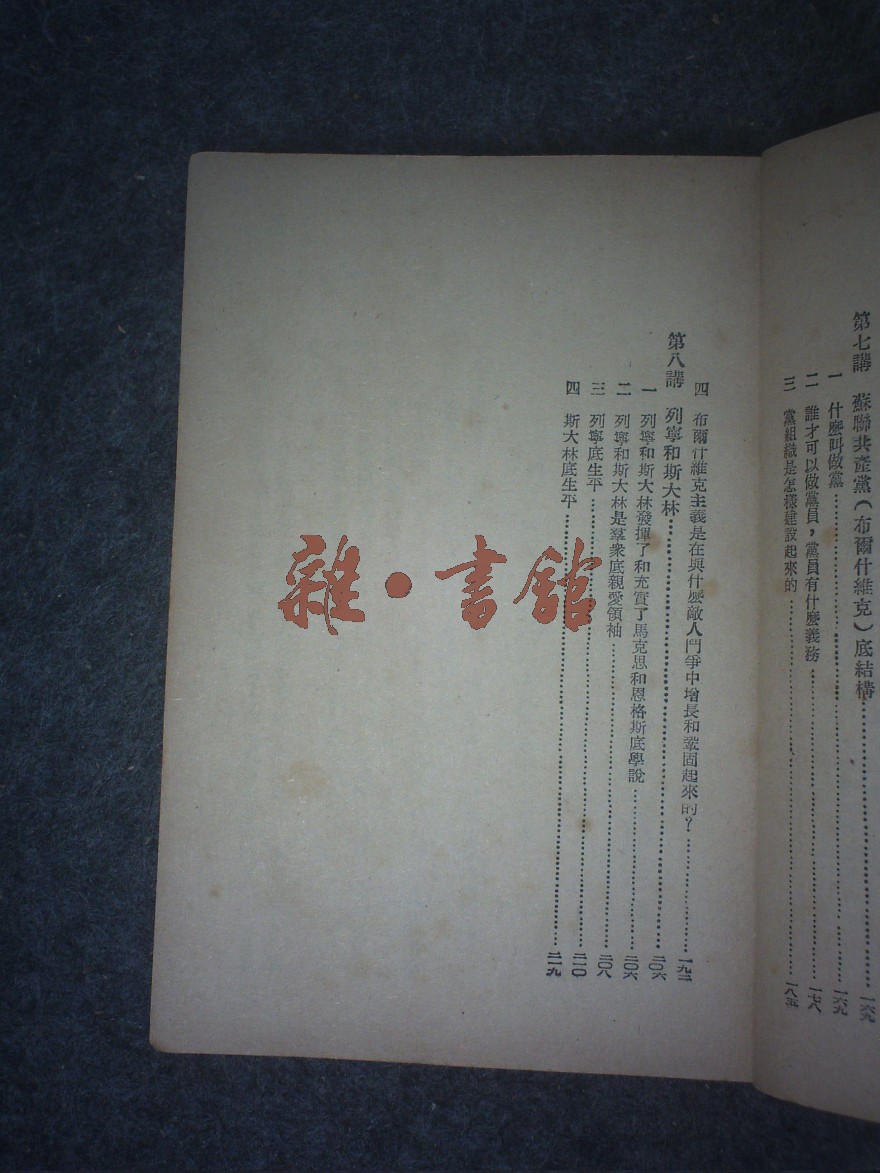 第七講 蘇聯共產黨(布爾什維克)底結構……一六九
一 什麽叫做黨……一六九
二 誰才可以做黨員，黨員有什麽義務……一七八
三 黨組織是怎樣建設起來的……一八五
四 布爾什維克主義是在與什麽敵人鬥爭中增長和鞏固起來的？……一九二
第八講 列寧和斯大林……二〇六
一 列寧和斯大林發揮了和充實了馬克思和恩格斯底學說……二〇六
二 列寧和斯大林是羣衆底親愛領袖……二〇八
三 列寧底生平……二一〇
四 斯大林底生平……二一九
雜·書館